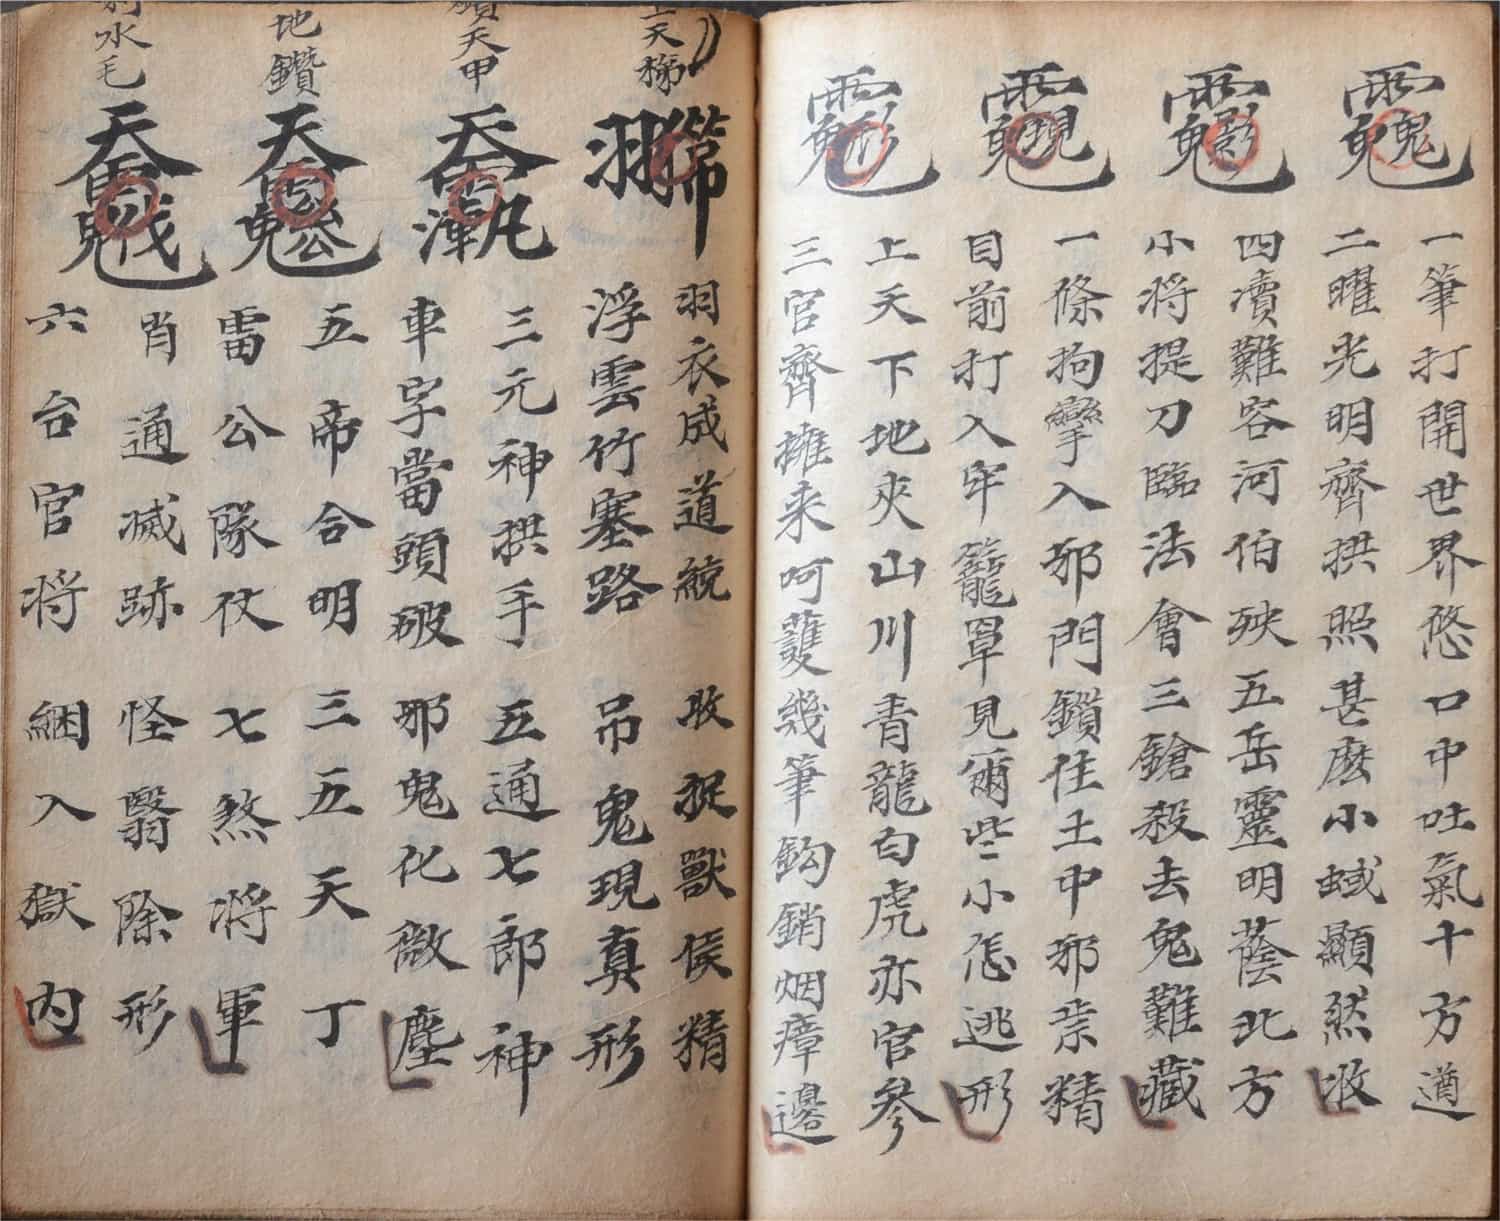 一筆打開世界悠口中吐氣十方遒
二曜光明齊拱照甚麽小蜮顯然收
四瀆難容河伯殃五岳靈明蔭北方
小将提刀臨法會三鎗殺去鬼難藏
一條拘攣入邪門鎖住土中邪祟精
目前打入牢籠罩見爾些小怎逃形
上天下地夾山川青龍白虎亦官參
三官齊擁来呵護幾筆鈎銷烟瘴邊
上天梯
羽衣成道統 收捉獸侯精
浮雲竹塞路 吊鬼現真形
天甲
三元神拱手 五通七郎神
車字當頭破 邪鬼化微塵
地鑽
五帝合明 三五天丁
雷公隊仗 七煞将軍
水毛
肖通滅跡 怪翳除形
六台官将 綑入獄内